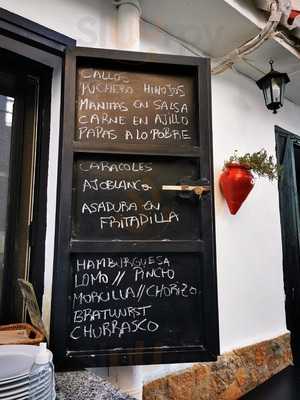 CALLOS
PUCHERO HINOJOS
MANITAS EN SALSA
CARNE EN AJILLO
PAPAS A LO POBRE
CARACOLES
AJOBLANCO
ASADURA EN
FRITADILLA
HAMBURGUESA
LOMO // PINCHO
MORCILLA // CHORIZO
BRATWURST
CHURRASCO